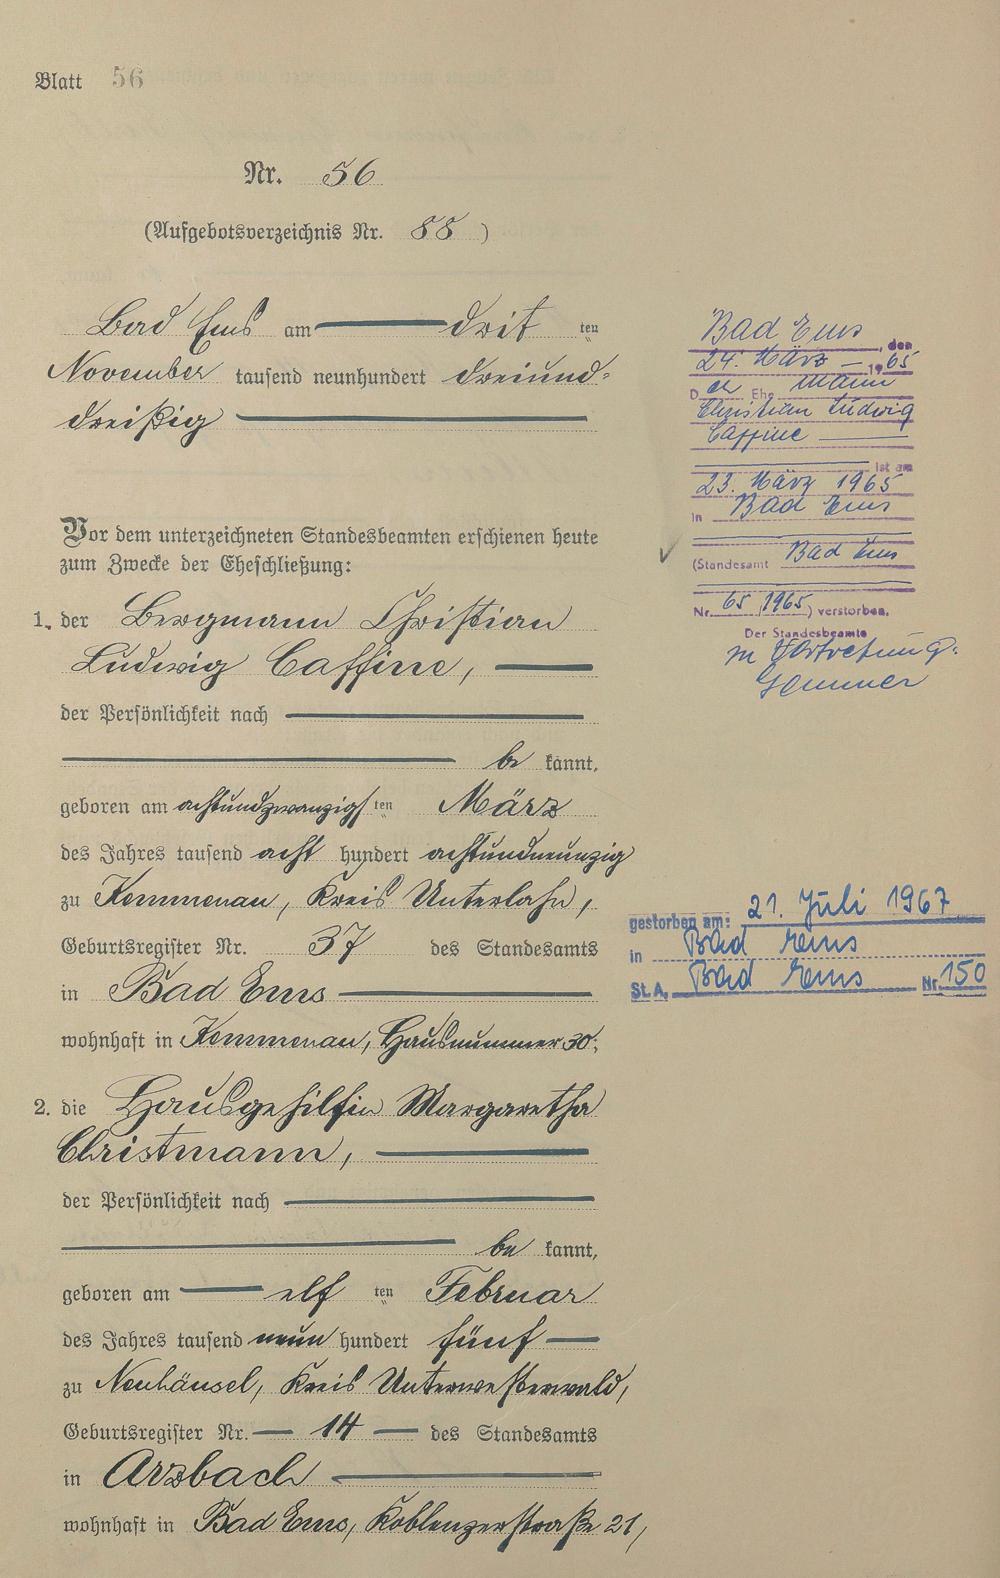 Blatt 56
Nr. 56
(Aufgebotsverzeichnis Nr. 88)
Bad Ems am drit ten
November tausend neunhundert dreiund-
dreißig
Vor dem unterzeichneten Standesbeamten erschienen heute
zum Zwecke der Eheschließung:
1. der Bergmann Christian
Ludwig Caffine,
der Persönlichkeit nach
be kannt,
geboren am achtundzwanzigs ten März
des Jahres tausend acht hundert achtundneunzig
zu Kemmenau, Kreis Unterlahn,
Geburtsregister Nr. 37 des Standesamts
in Bad Ems
wohnhaft in Kemmenau, Hausnummer 30;
2. die Hausgehilfin Margaretha
Christmann,
der Persönlichkeit nach
be kannt,
geboren am elf ten Februar
des Jahres tausend neun hundert fünf
zu Neuhäusel, Kreis Unterwesterwald,
Geburtsregister Nr. 14 des Standesamts
in Arzbach
wohnhaft in Bad Ems, Koblenzerstraße 21,
Bad Ems, den
24. März 1965
D er Ehe mann
Christian Ludwig
Caffine
ist am
23. März 1965
in Bad Ems
(Standesamt Bad Ems
Nr. 65/1965) verstorben.
Der Standesbeamte
In Vertretung:
gestorben am: 21. Juli 1967
in Bad Ems
St.A. Bad Ems Nr. 150